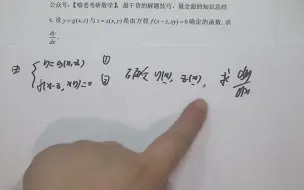 公众号:【喻老考研数学】,最干货的解题技巧,最全面的知识总结
4. 设 y=g(x,z) 与 z=z(x,y) 是由方程 f(x-z,xy)=0 确定的函数, 求
dz
dx
y=g(x,z) ①
f(x-z,xy)=0 ②
确定 y(x), z(x), 求 dy/dx